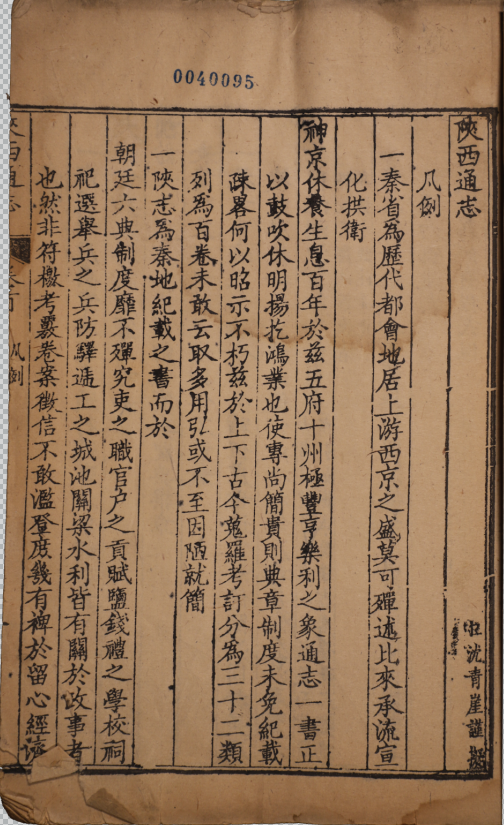 0040095
陝西通志
凡例
沈青崖謹擬
一秦省為歷代都會地居上游西京之盛莫可殫述比來承流宣
化拱衛
神京休養生息百年於兹五府十州極豐亨樂利之象通志一書正
以鼓吹休明揚扢鴻業也使專尚簡貴則典章制度未免紀載
踈畧何以昭示不朽兹於上下古今蒐羅考訂分為三十二類
列為百卷未敢云取多用弘或不至因陋就簡
一陝志為秦地紀載之書而於
朝廷六典制度靡不殫究吏之職官户之貢賦鹽錢禮之學校祠
祀選舉兵之兵防驛遞工之城池關梁水利皆有關於政事者
也然非符檄考覈卷案徵信不敢濫登庶幾有裨於留心經濟
陝西通志
凡例